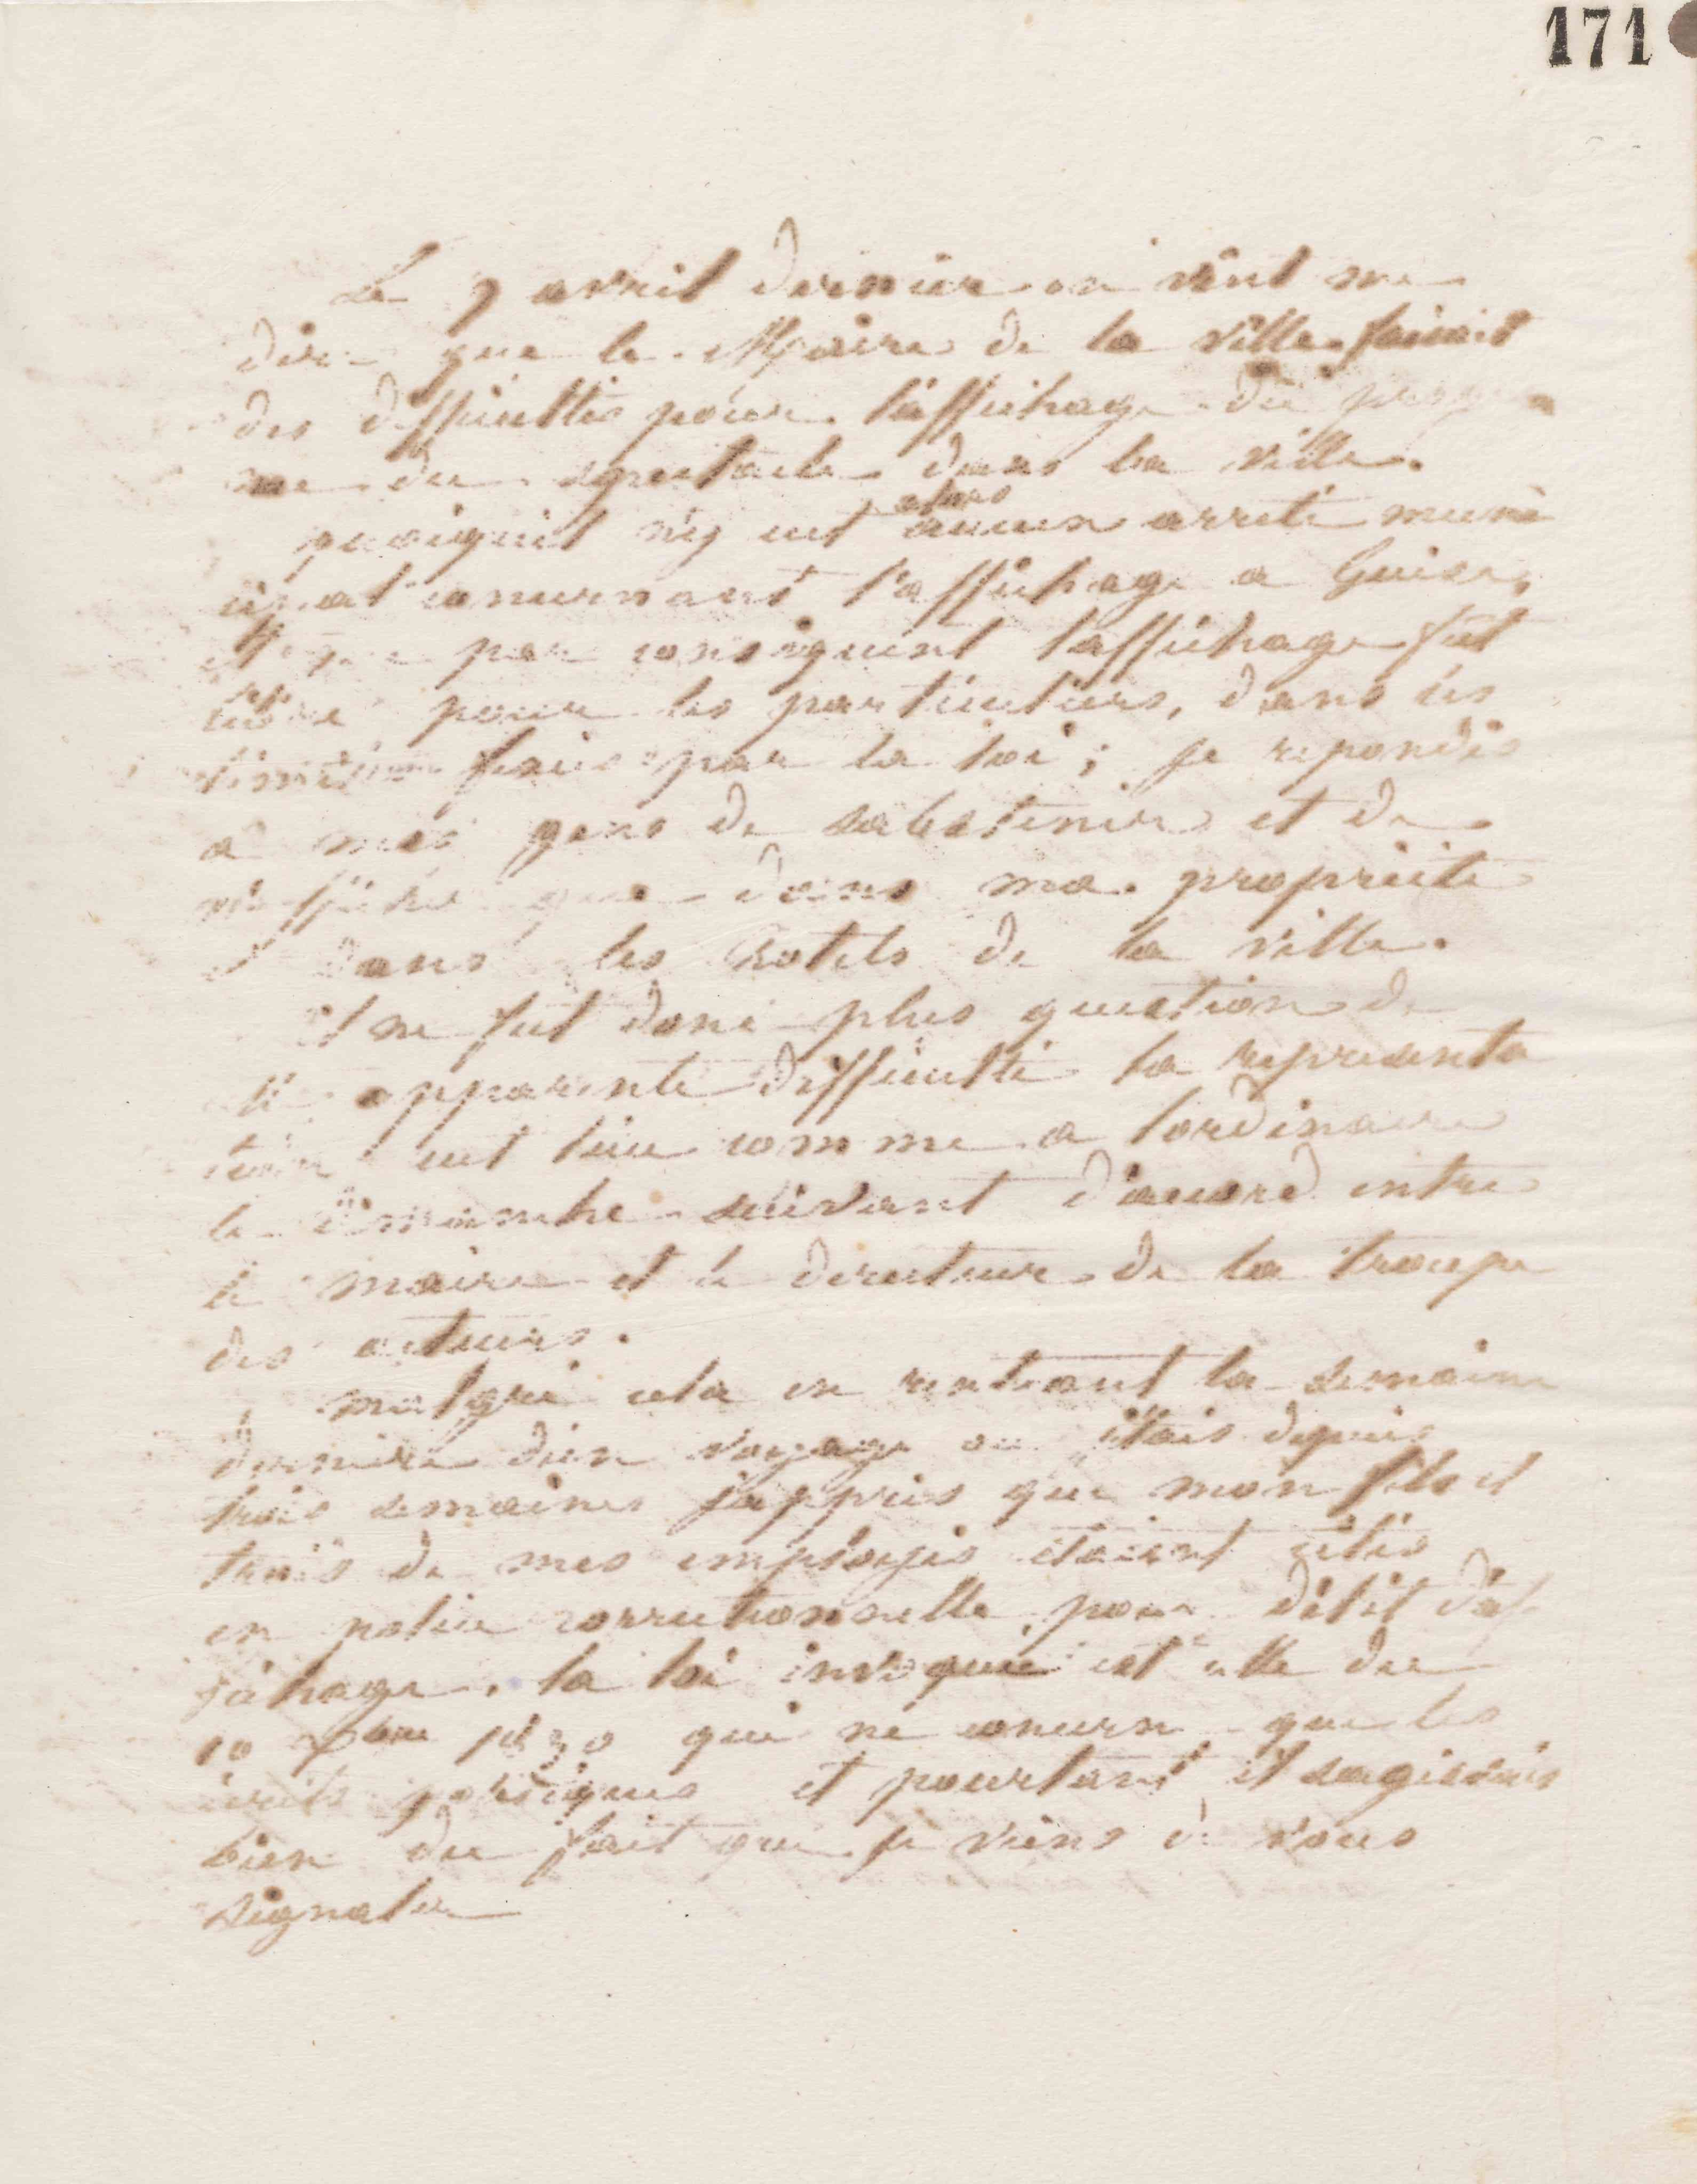 171
Le 7 avril dernier on vint me
dire que le Maire de la ville faisait
des difficultés pour l'affichage du prog
me du spectacle dans la ville.
alors
quoiqu'il n'y eut aucun arreté muni
cipal concernant l'affichage a Guise,
et que par consequent l'affichage fut
libre pour les particuliers, dans les
limites par la loi ; je repondis
a mes gens de sabstenir et de
n'afficher que dans ma propriété
et dans les hotels de la ville.
Il ne fut donc plus question de
apparente difficulté la representa
tion eut lieu comme a lordinaire
le dimanche suivant d'accord entre
le maire et le directeur de la troupe
des acteurs.
malgré cela en rentrant la semaine
dernière d'un voyage ou j'étais depuis
trois semaines j'appris que mon fils et
trois de mes employés étaient cités
en police correctionnelle pour délit d'af
fichage. la loi invoquée est celle du
10 Xbre 1830 qui ne concerne que les
écrits politiques et pourtant il sagissait
bien du fait que je viens de vous
signaler